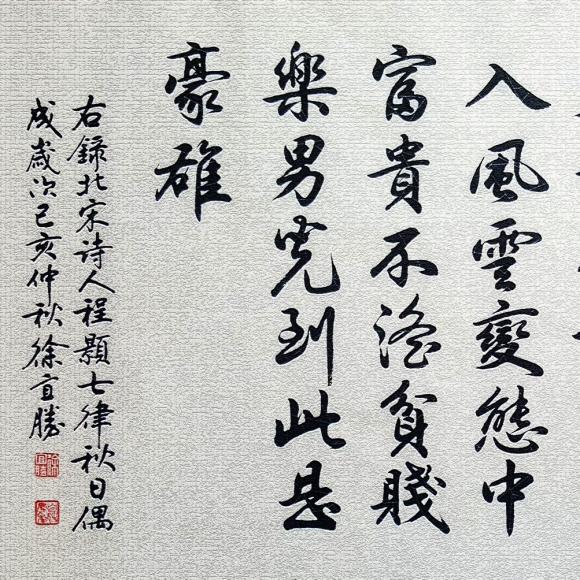 入風雲變態中
富貴不淫貧賤
樂男兒到此是
豪雄
右録北宋诗人程顥七律秋日偶
成歲次己亥仲秋徐宜勝